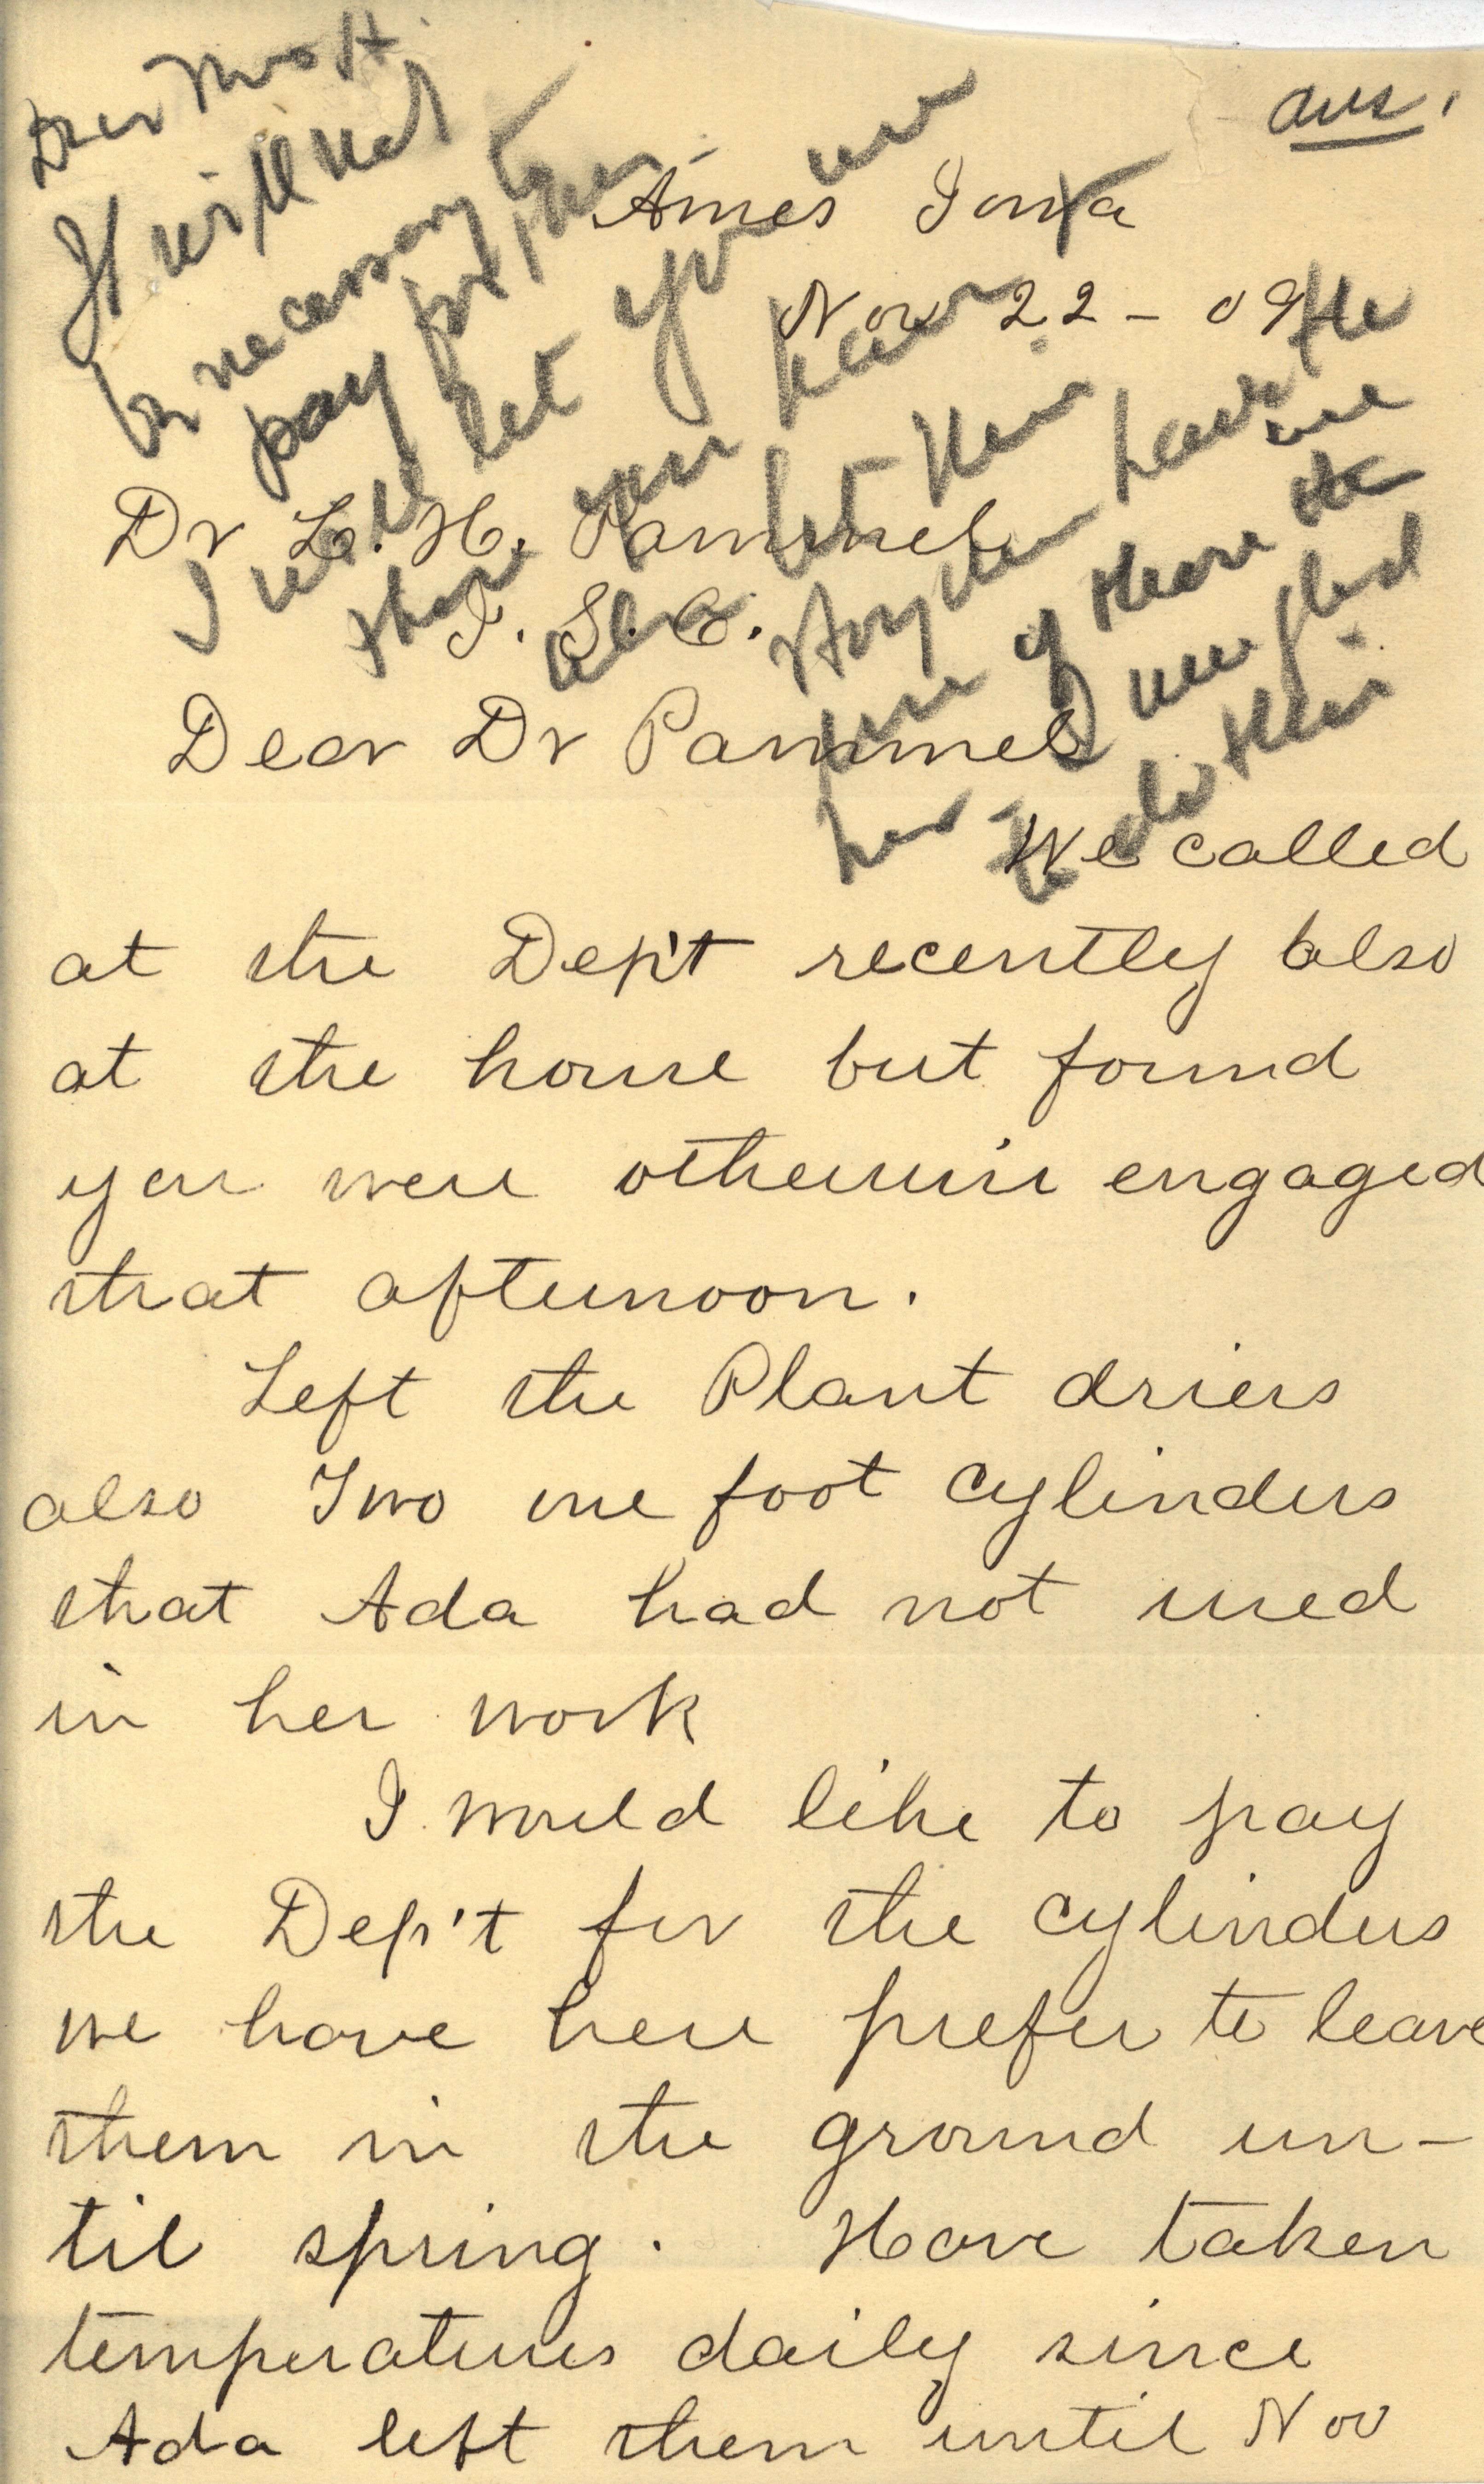 ans.
Dear Mrs H.
It will not
be necessary to
pay for them
I will let you use
them you have
also let him
have the
use of these
I am glad
had to do this
Ames Iowa
Nov 22 - 09
Dr L. H. Pammel
I. S. C.
Dear Dr Pammel
We called
at the Dep't recently also
at the house but found
you were otherwise engaged
that afternoon.
Left the Plant driers
also Two one foot cylinders
that Ada had not used
in her work
I would like to pay
the Dep't for the cylinders
we have here prefer to leave
them in the ground un-
til spring. Have taken
temperatures daily since
Ada left them until Nov